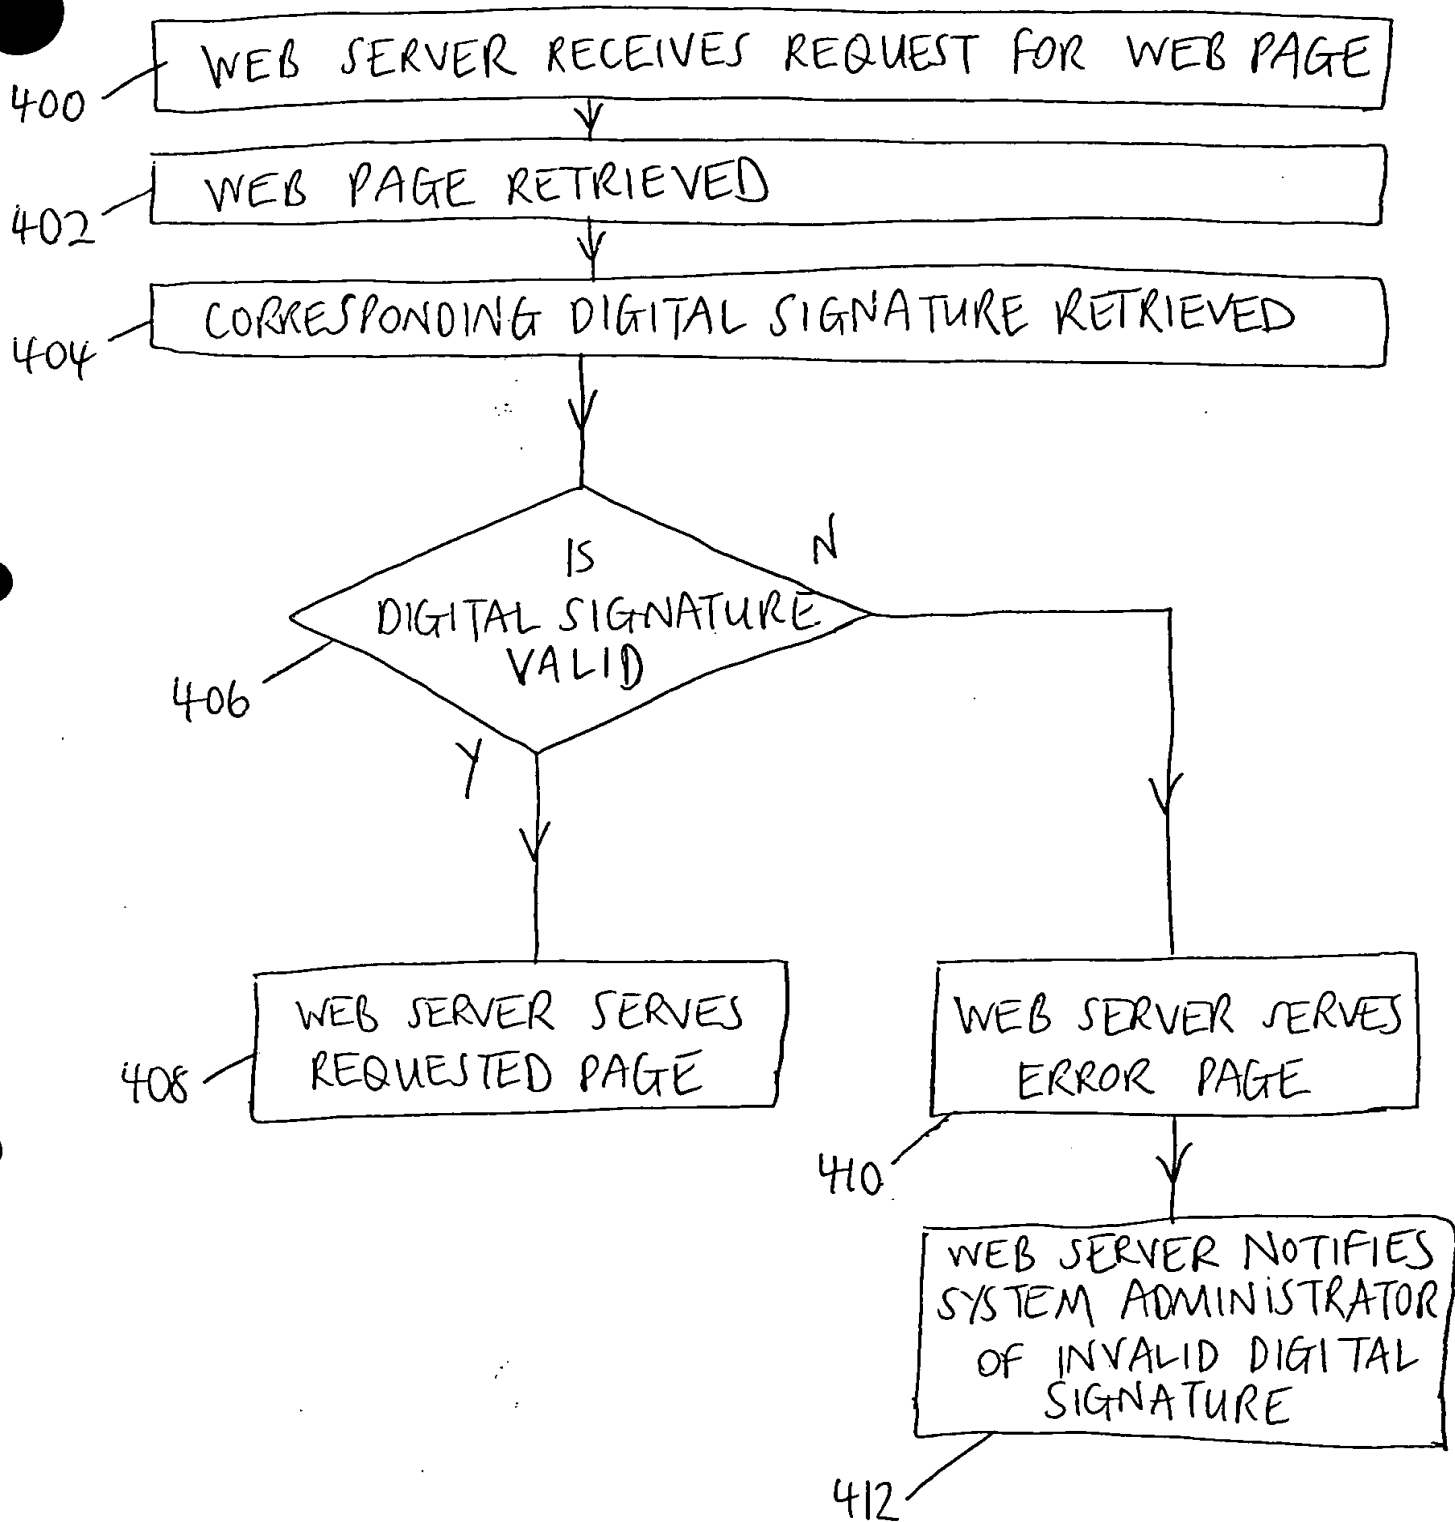 WEB SERVER RECEIVES REQUEST FOR WEB PAGE
400
WEB PAGE RETRIEVED
402
CORRESPONDING DIGITAL SIGNATURE RETRIEVED
404
N
IS
DIGITAL SIGNATURE
VALID
406
Y
WEB SERVER SERVES
REQUESTED PAGE
408
WEB SERVER SERVES
ERROR PAGE
410
WEB SERVER NOTIFIES
SYSTEM ADMINISTRATOR
OF INVALID DIGITAL
SIGNATURE
412